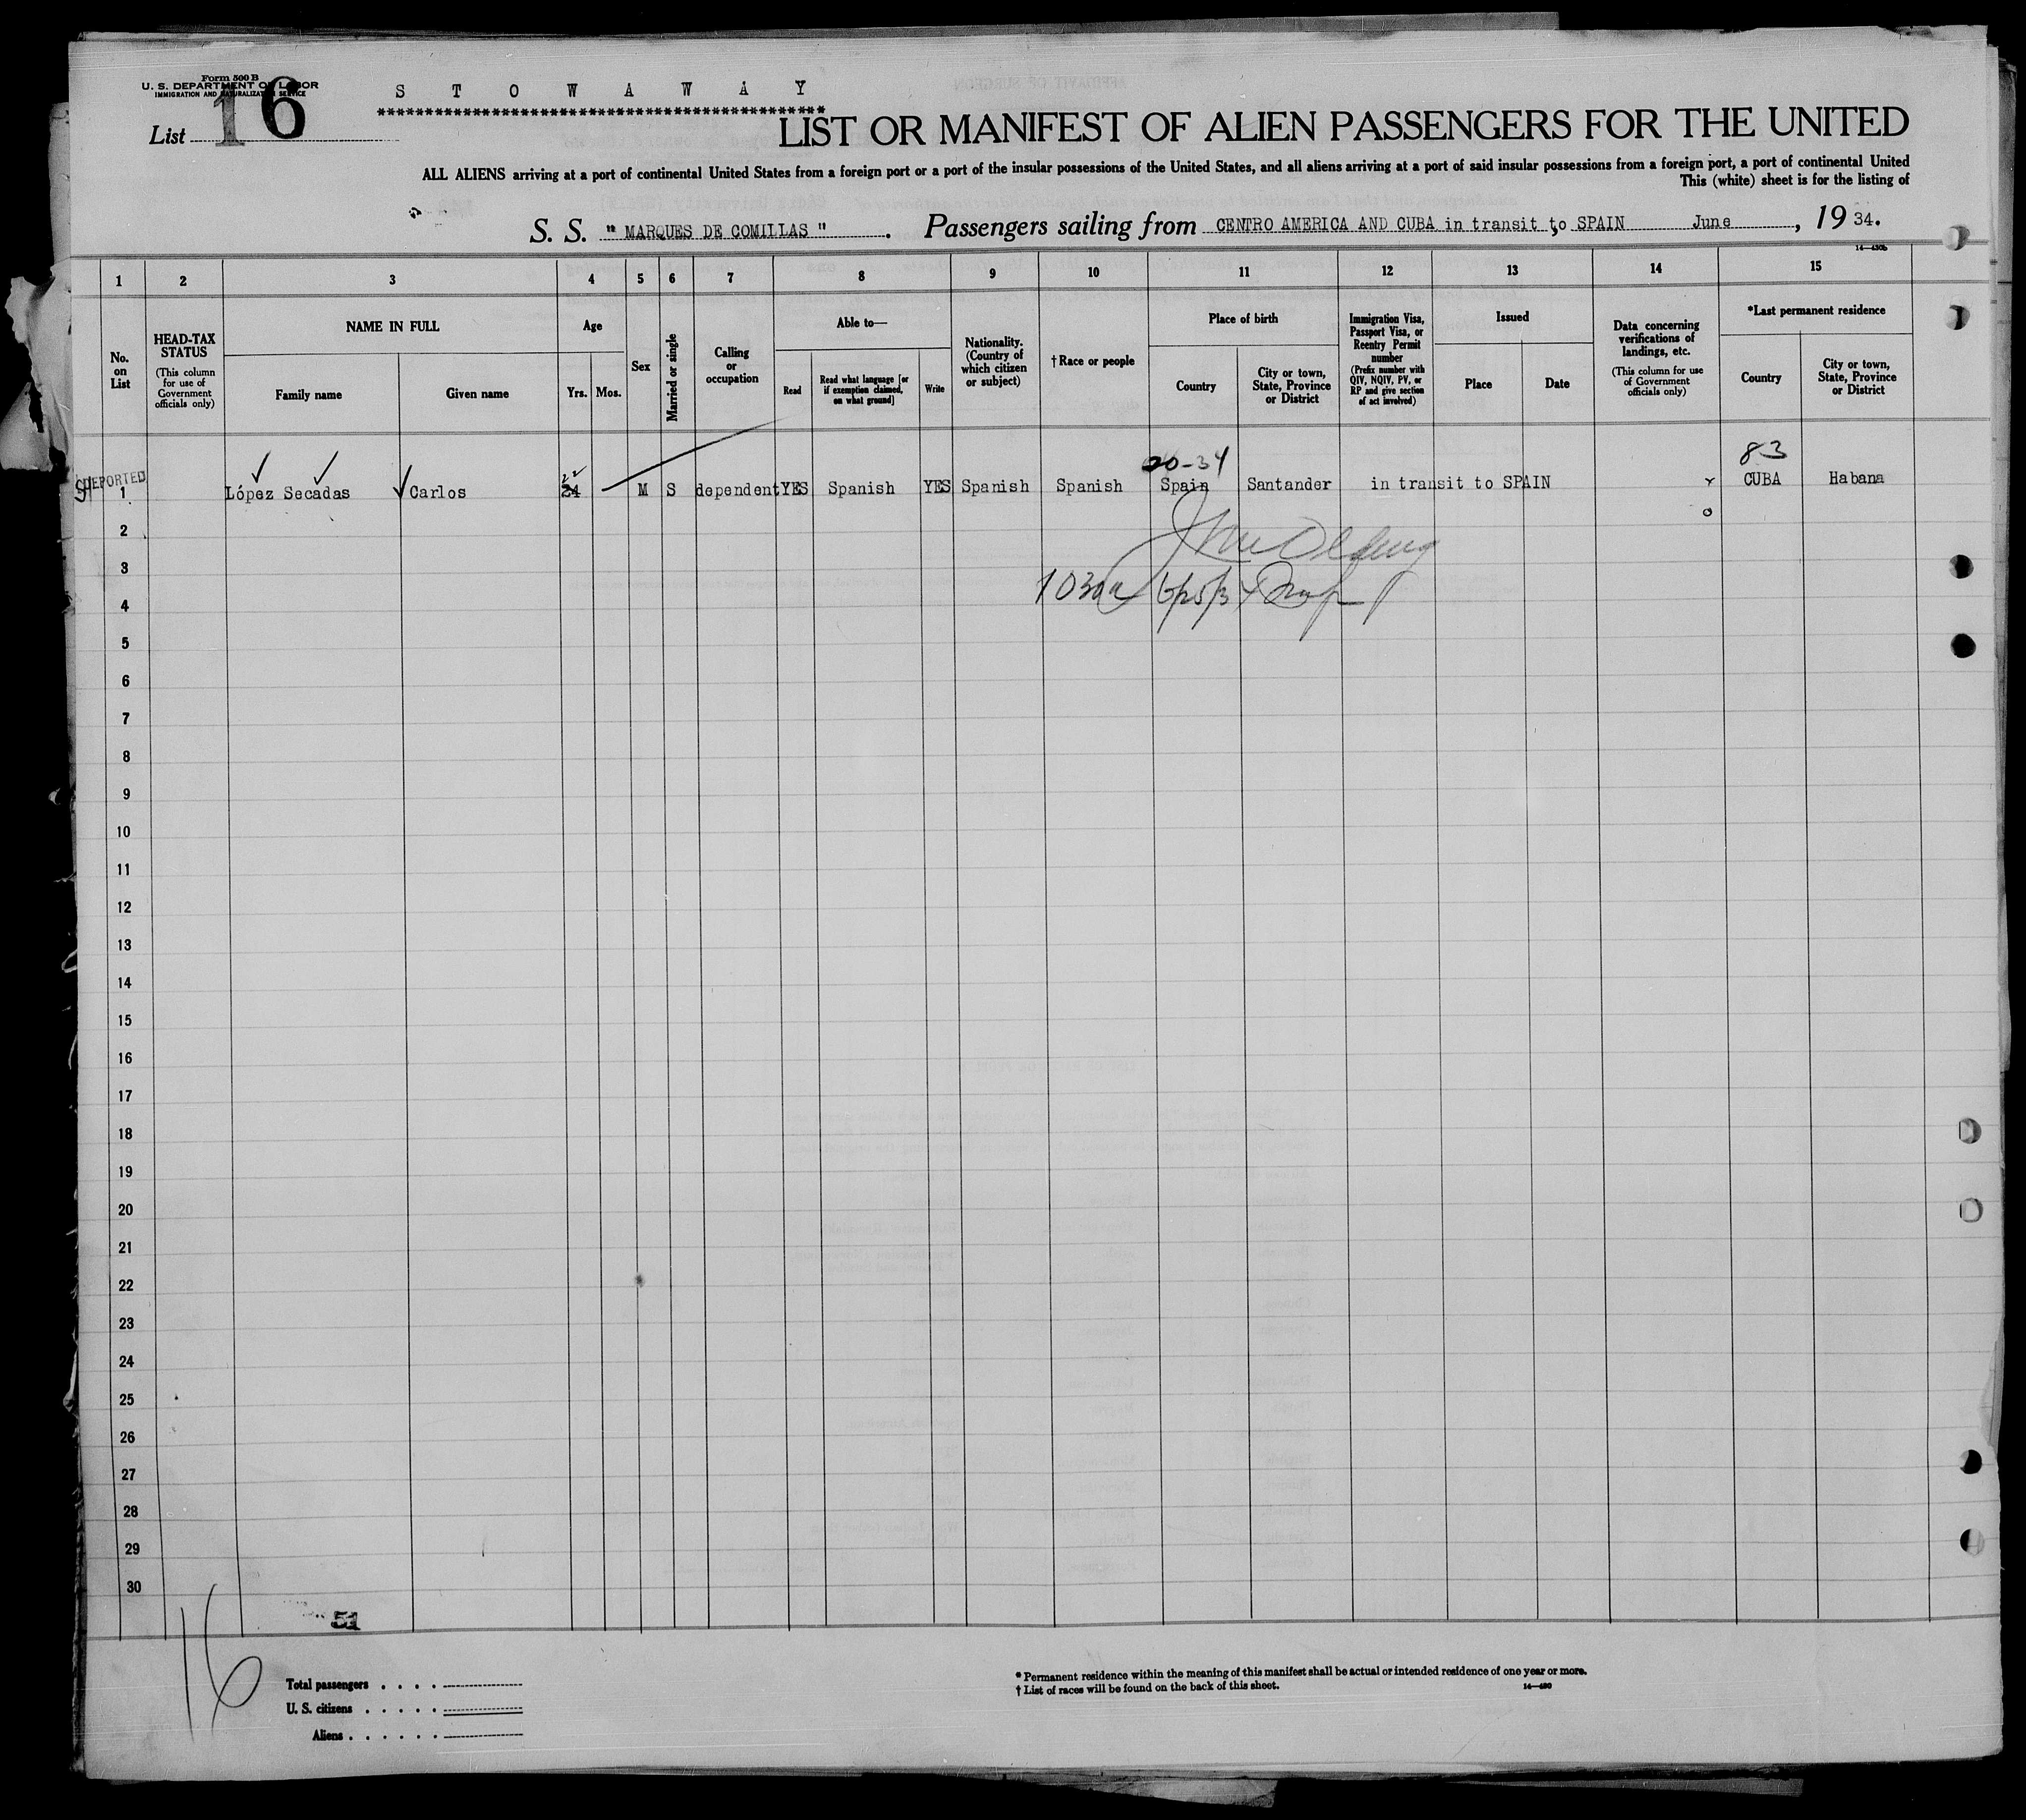 Form 500 B
U. S. DEPARTMENT OF LABOR
IMMIGRATION AND NATURALIZATION SERVICE
S T O W A W A Y
List 16
LIST OR MANIFEST OF ALIEN PASSENGERS FOR THE UNITED
ALL ALIENS arriving at a port of continental United States from a foreign port or a port of the insular possessions of the United States, and all aliens arriving at a port of said insular possessions from a foreign port, a port of continental United
This (white) sheet is for the listing of
S. S. " MARQUES DE COMILLAS " . Passengers sailing from CENTRO AMERICA AND CUBA in transit to SPAIN June , 19 34.
14—430b
1 2 3 4 5 6 7 8 9 10 11 12 13 14 15
No. on List
HEAD-TAX STATUS
(This column for use of Government officials only)
NAME IN FULL
Family name
Given name
Age
Yrs. Mos.
Sex
Married or single
Calling or occupation
Able to—
Read
Read what language [or if exemption claimed, on what ground]
Write
Nationality. (Country of which citizen or subject)
† Race or people
Place of birth
Country
City or town, State, Province or District
Immigration Visa, Passport Visa, or Reentry Permit number
(Prefix number with QIV, NQIV, PV, or RP and give section of act involved)
Issued
Place
Date
Data concerning verifications of landings, etc.
(This column for use of Government officials only)
*Last permanent residence
Country
City or town, State, Province or District
20-34
83
DEPORTED
22
1 López Secadas Carlos 24 M S dependent YES Spanish YES Spanish Spanish Spain Santander in transit to SPAIN CUBA Habana
2
3
1030a 6/25/34
4
5
6
7
8
9
10
11
12
13
14
15
16
17
18
19
20
21
22
23
24
25
26
27
28
29
30
51
16
Total passengers . . . .
U. S. citizens . . . . .
Aliens . . . . . .
* Permanent residence within the meaning of this manifest shall be actual or intended residence of one year or more.
† List of races will be found on the back of this sheet.
14—430